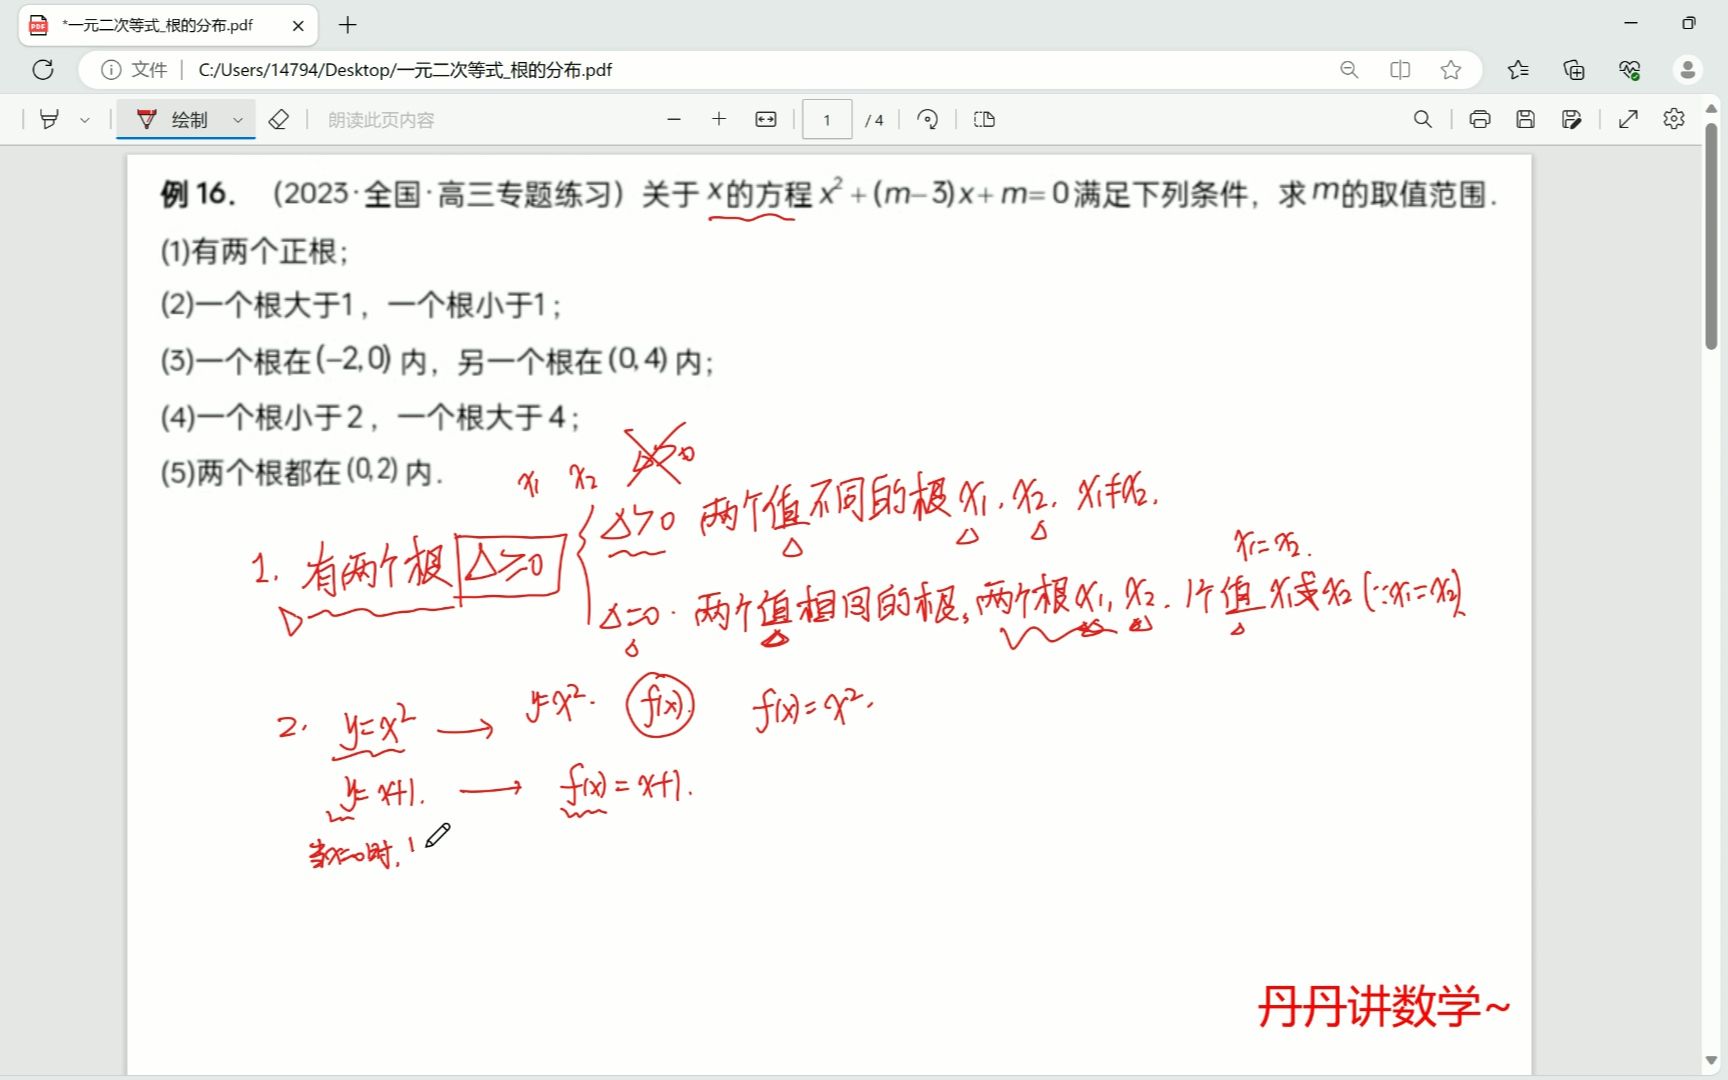 *一元二次等式_根的分布.pdf
文件 C:/Users/14794/Desktop/一元二次等式_根的分布.pdf
绘制 朗读此页内容 1 / 4
例 16. (2023·全国·高三专题练习) 关于 x 的方程 x² + (m−3)x + m = 0 满足下列条件, 求 m 的取值范围.
(1)有两个正根;
(2)一个根大于1, 一个根小于1;
(3)一个根在(−2,0)内, 另一个根在(0,4)内;
(4)一个根小于2, 一个根大于4;
(5)两个根都在(0,2)内.
x₁ x₂ Δ>0
Δ>0 两个值不同的根 x₁, x₂. x₁≠x₂.
1. 有两个根 Δ≥0
x₁=x₂.
Δ=0. 两个值相同的根, 两个根 x₁, x₂. 1个值 x₁或x₂ (∵x₁=x₂)
2. y=x² → y=x². f(x). f(x)=x².
y=x+1. → f(x)=x+1.
当x=0时,
丹丹讲数学~